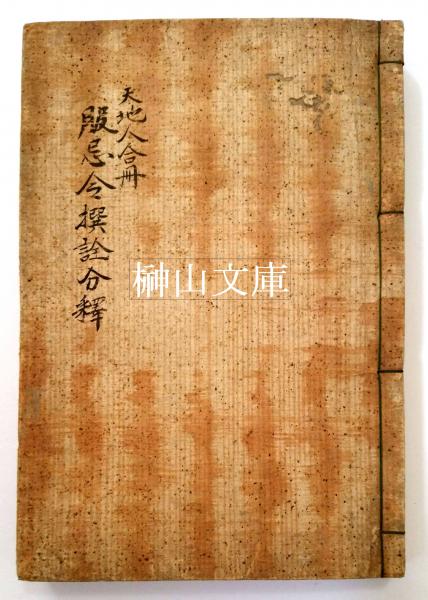 天地人合冊
服忌令撰註分釋
榊山文庫